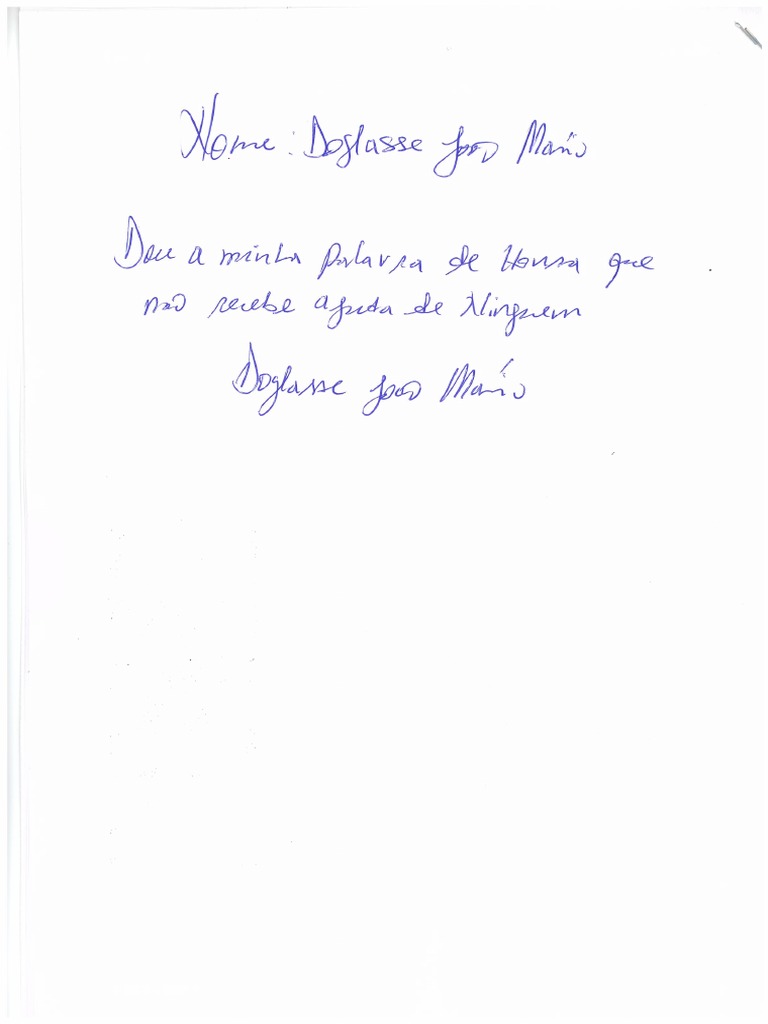 Nome: Doglasse João Mário
Dou a minha palavra de Honra que
não recebe ajuda de Ninguem
Doglasse João Mário